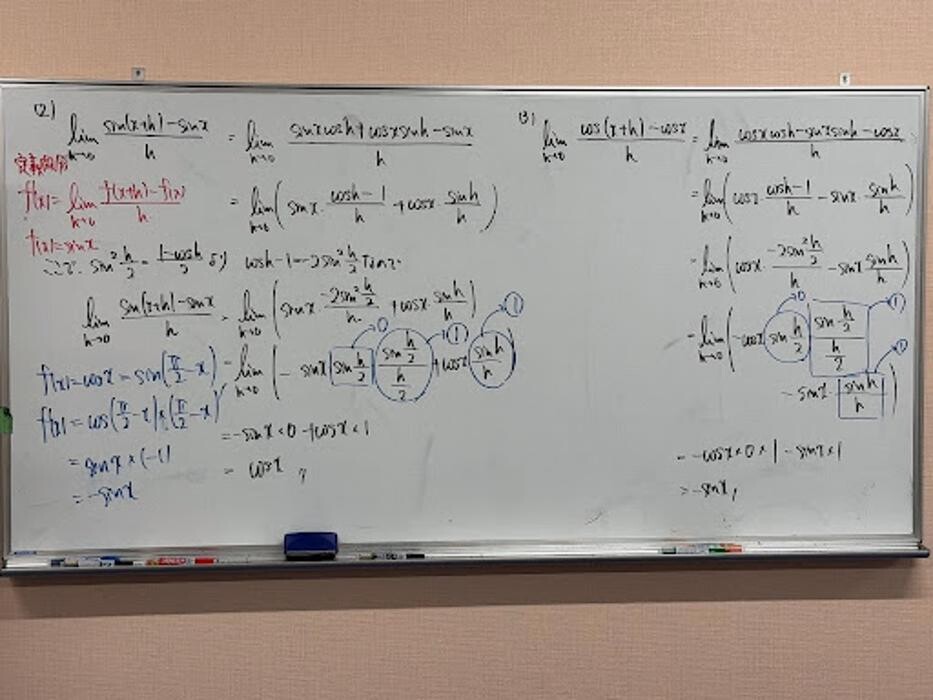 (2)
lim h→0 sin(x+h)-sinx / h = lim h→0 sinxcosh+cosxsinh-sinx / h
定義
f'(x)=lim h→0 f(x+h)-f(x) / h
= lim h→0 (sinx・cosh-1 / h + cosx・sinh / h)
f(x)=sinx
ここで、sin² h/2 = 1-cosh / 2 より cosh-1=-2sin² h/2 なので
lim h→0 sin(x+h)-sinx / h = lim h→0 (sinx・-2sin² h/2 / h + cosx・sinh / h)
= lim h→0 (-sinx sin h/2 ・ sin h/2 / h/2 + cosx sinh / h)
0 1 1
= -sinx×0+cosx×1
= cosx
f(x)=cosx=sin(π/2-x)
f'(x)=cos(π/2-x)×(π/2-x)'
=sinx×(-1)
=-sinx
(3)
lim h→0 cos(x+h)-cosx / h = lim h→0 cosxcosh-sinxsinh-cosx / h
= lim h→0 (cosx・cosh-1 / h - sinx・sinh / h)
= lim h→0 (cosx・-2sin² h/2 / h - sinx sinh / h)
= lim h→0 (-cosx sin h/2 ・ sin h/2 / h/2
0 1
- sinx・sinh / h)
1
= -cosx×0×1-sinx×1
= -sinx